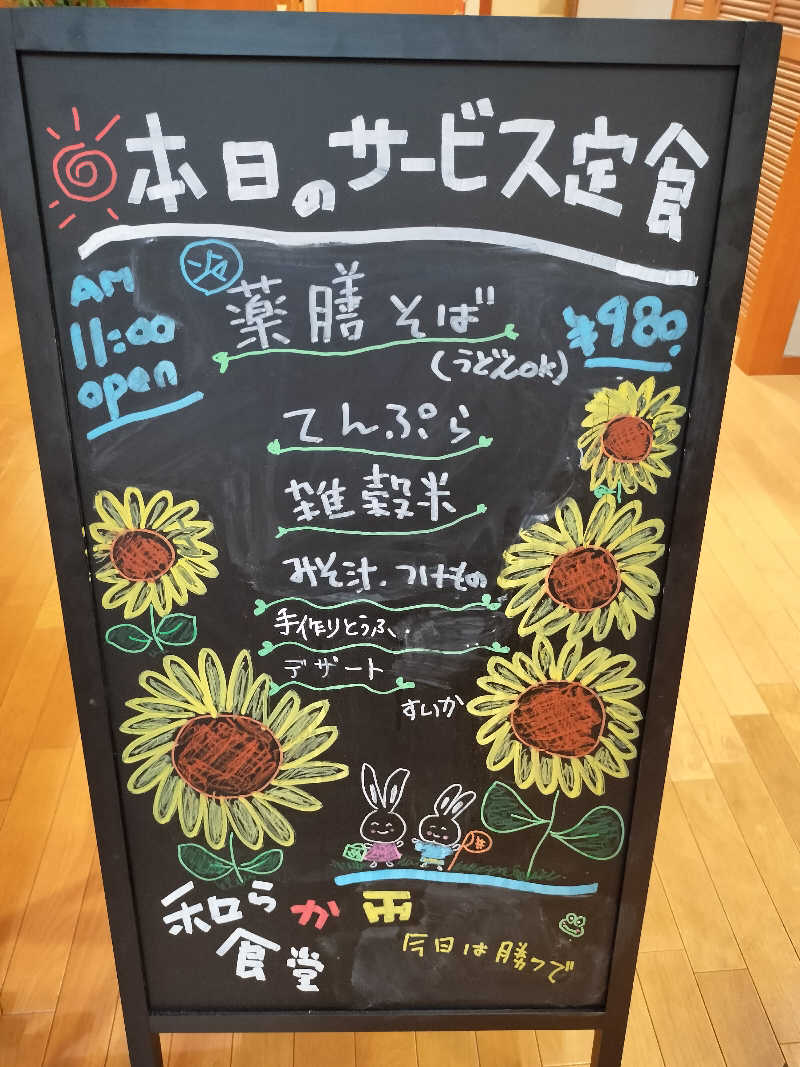 本日のサービス定食
AM
11:00
open
薬膳そば
¥980
(うどんok)
てんぷら
雑穀米
みそ汁、つけもの
手作りとうふ、
デザート
すいか
和らか
食堂
今日は勝つで